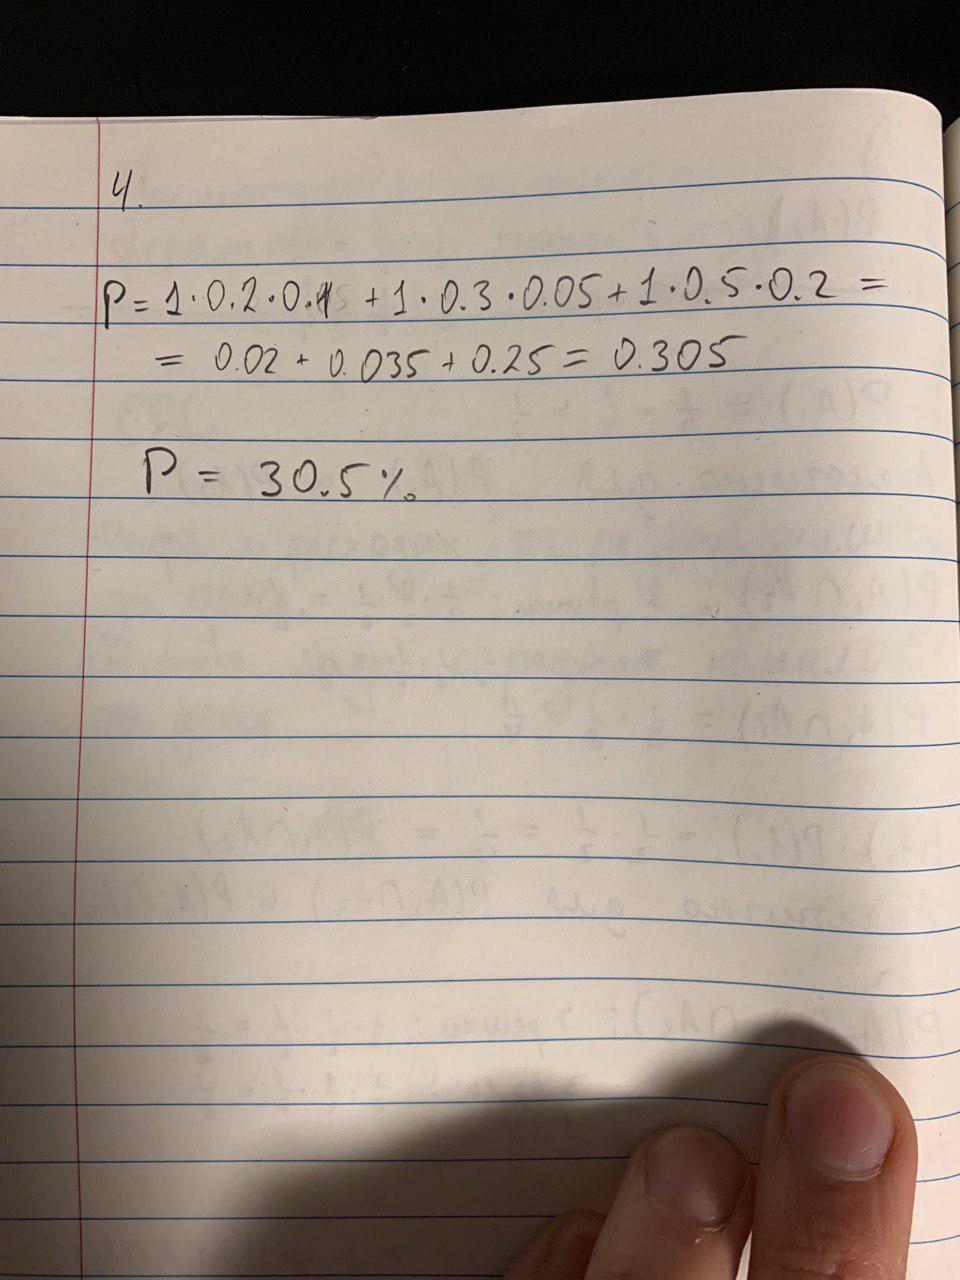 4.
P = 1·0.2·0.1 + 1·0.3·0.05 + 1·0.5·0.2 =
= 0.02 + 0.035 + 0.25 = 0.305
P = 30.5%